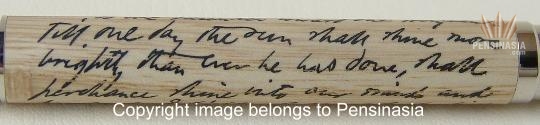 Till one day the sun shall shine more
brightly than ever he has done, shall
perchance shine into our minds and
PENSINASIA
.com
Copyright image belongs to Pensinasia